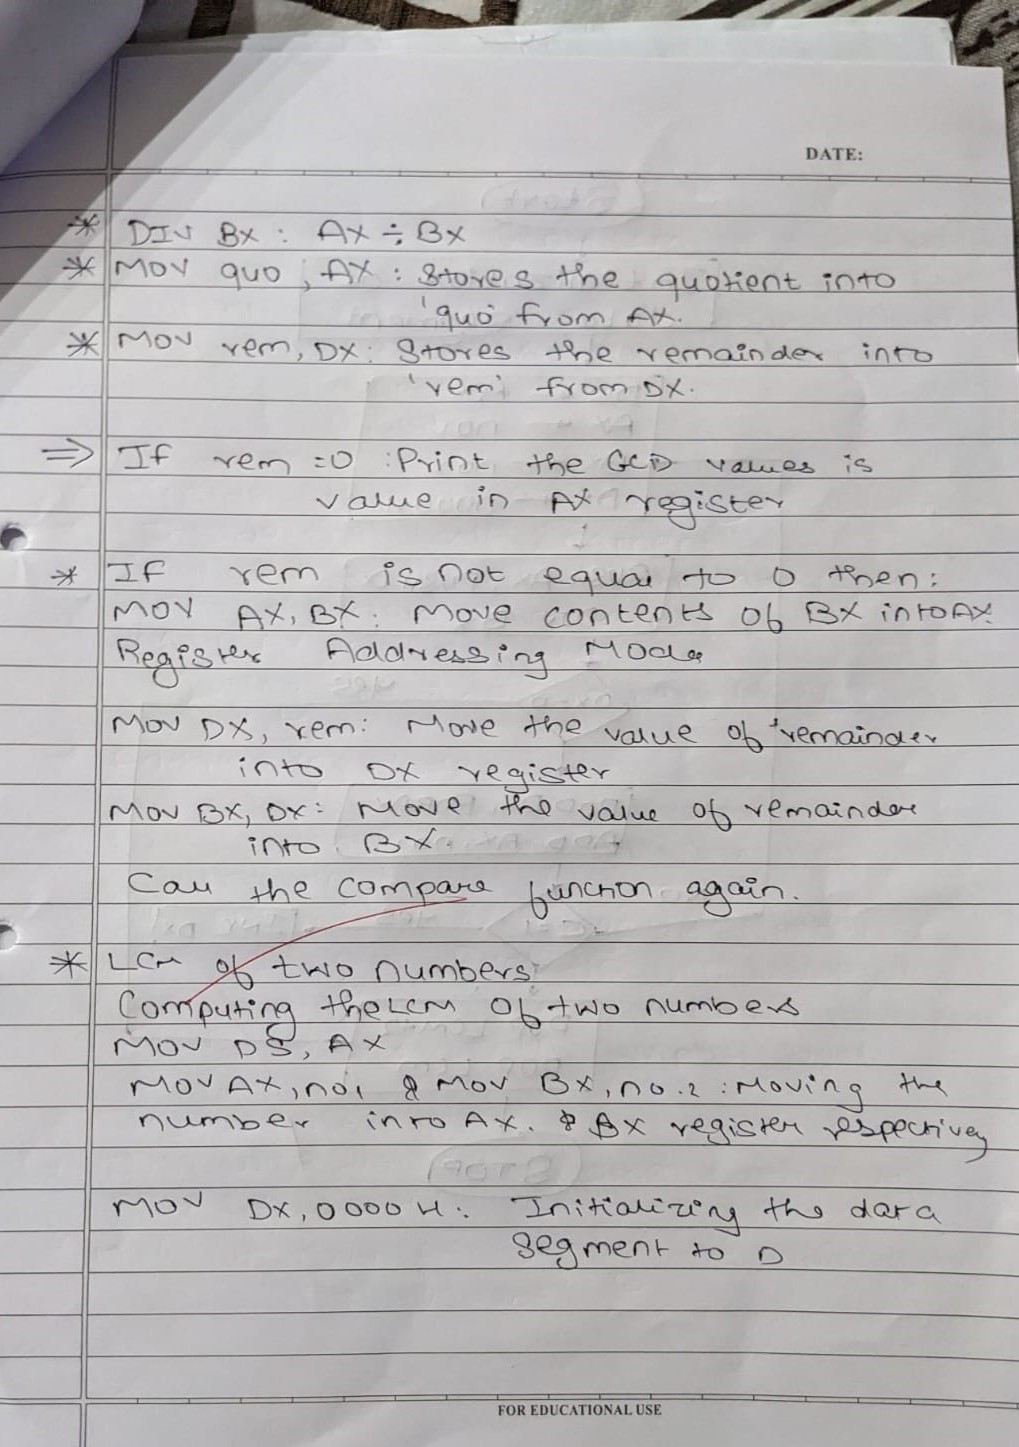 DATE:
* DIV BX : AX ÷ BX
* MOV quo, AX : Stores the quotient into
'quo' from AX.
* MOV rem, DX: Stores the remainder into
'rem' from DX.
⇒ If rem =0 :Print the GCD values is
value in AX register
* If rem is not equal to 0 then:
MOV AX, BX: Move contents of BX into AX.
Register Addressing Mode
MOV DX, rem: Move the value of 'remainder
into DX register
MOV BX, DX: Move the value of remainder
into BX.
Call the compare function again.
* LCM of two numbers
Computing the LCM of two numbers
MOV DS, AX
MOV AX, no1 & MOV BX, no.2 : Moving the
number into AX. & BX register respectively
MOV DX, 0000 H: Initializing the data
Segment to 0
FOR EDUCATIONAL USE